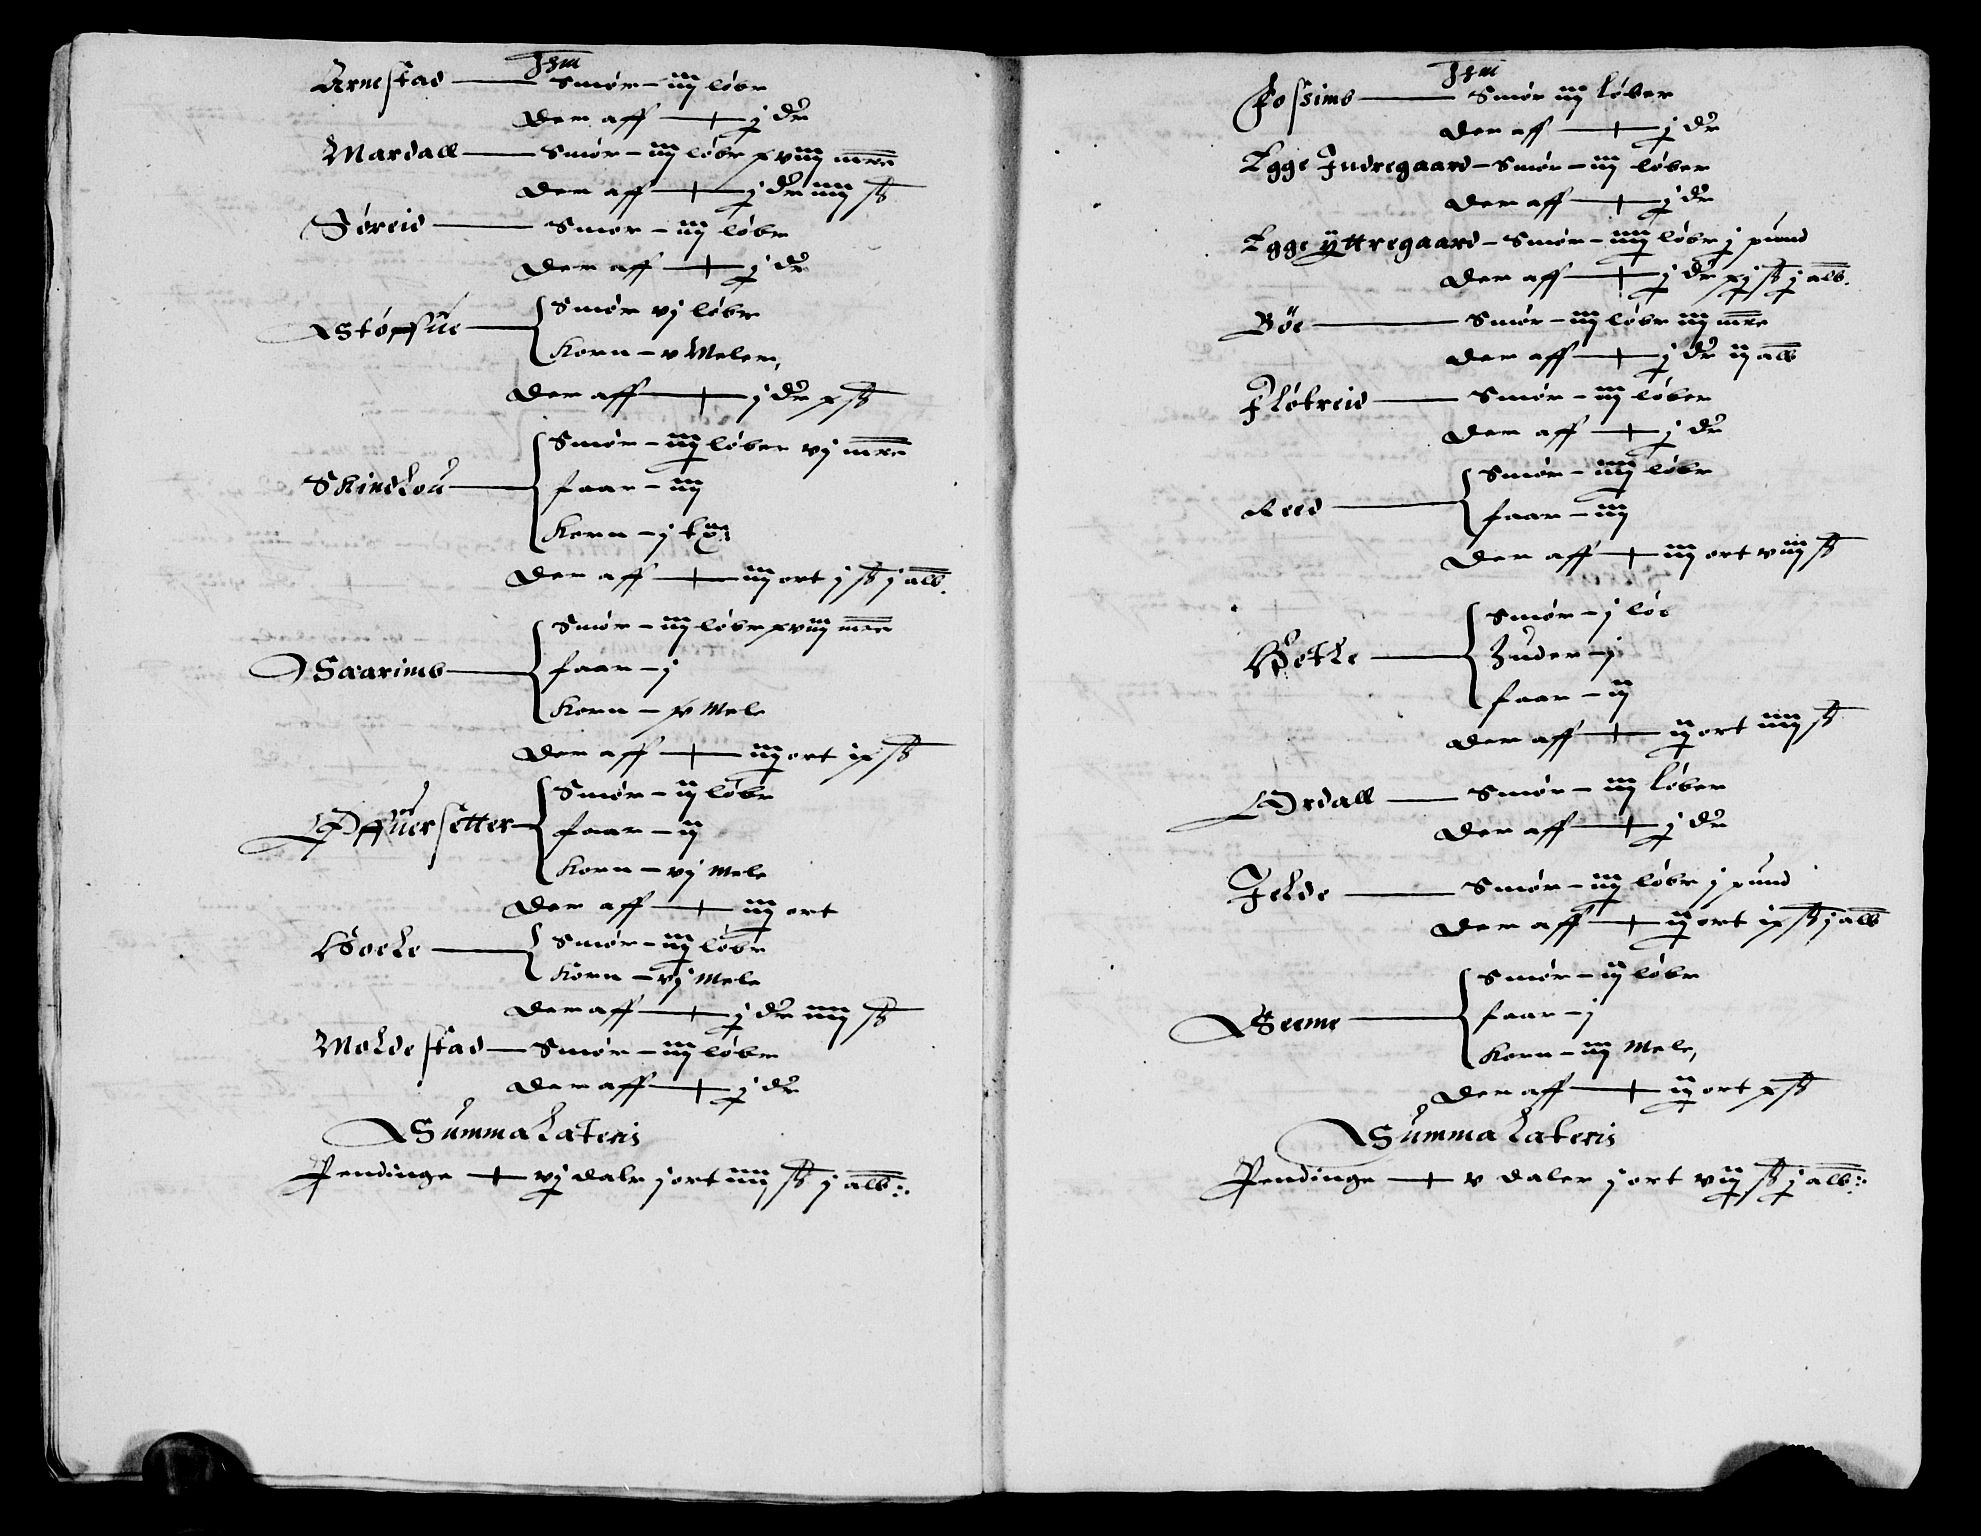 Itm
Arnestad — Smør — iij løbr
Der aff — j dr
Mardall — Smør — iij løbr xviij mrc
Der aff — j dr iiij ß
Søreid — Smør — iij løbr
Der aff — j dr
Støffue — Smør vj løbr
Korn — v Meler,
Der aff — j dr x ß
Skindlou — Smør — iij løber vj mrc
faar — iij
Korn — j
Der aff — iij ort j ß j alb.
Aarimb — Smør — iij løbr xviij mrc
faar — j
Korn — xv Mele
Der aff — iij ort ix ß
Offuersetter — Smør — iij løbr
faar — ij
Korn — vj Mele
Der aff — iij ort
Hoele — Smør — iij løbr
Korn — vj Mele
Der aff — j dr iiij ß
Moldestad — Smør — iij løbr
Der aff — j dr
Summa Lateris
Pendinge — vj dalr j ort iiij ß j alb:
Itm
Fossimb — Smør iij løber
Der aff — j dr
Egge Indregaard — Smør — iij løber
Der aff — j dr
Egge ÿttregaard — Smør — iiij løbr j pund
Der aff — j dr xj ß j alb.
Bøe — Smør — iij løbr iij mrc
Der aff — j dr ij alb
Fløtreid — Smør — iij løber
Der aff — j dr
Reed — Smør — iiij løbr
faar — iij
Der aff — iij ort viij ß
Hetle — Smør — j løb
Huder — j
faar — ij
Der aff — ij ort iiij ß
Ordall — Smør — iij løber
Der aff — j dr
Felde — Smør — iij løbr j pund
Der aff — iij ort ix ß j alb
Seeme — Smør — ij løbr
faar — j
Korn — iij Mele,
Der aff — ij ort x ß
Summa Lateris
Pendinge — v daler j ort vij ß j alb: